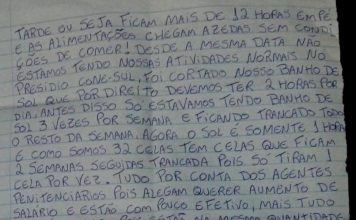 TARDE OU SEJA FICAM MAIS DE 12 HORAS EM PÉ
E AS ALIMENTAÇÕES CHEGAM AZEDAS SEM CONDI
ÇÕES DE COMER! DESDE A MESMA DATA NÃO
ESTAMOS TENDO NOSSAS ATIVIDADES NORMAIS NO
PRESIDIO CONE-SUL, FOI CORTADO NOSSO BANHO DE
SOL QUE POR DIREITO DEVEMOS TER 2 HORAS POR
DIA, ANTES DISSO SO ESTAVAMOS TENDO BANHO DE
SOL 3 VEZES POR SEMANA E FICANDO TRANCADO TODO
O RESTO DA SEMANA. AGORA O SOL E SOMENTE 1 HORA
E COMO SOMOS 32 CELAS TEM CELAS QUE FICAM
2 SEMANAS SEGUIDAS TRANCADA POIS SO TIRAM 1
CELA POR VEZ. TUDO POR CONTA DOS AGENTES
PENITENCIARIOS POIS ALEGAM QUERER AUMENTO DE
SALÁRIO E ESTÃO COM POUCO EFETIVO, MAIS TUDO
NA MESMA QUANTIDADE